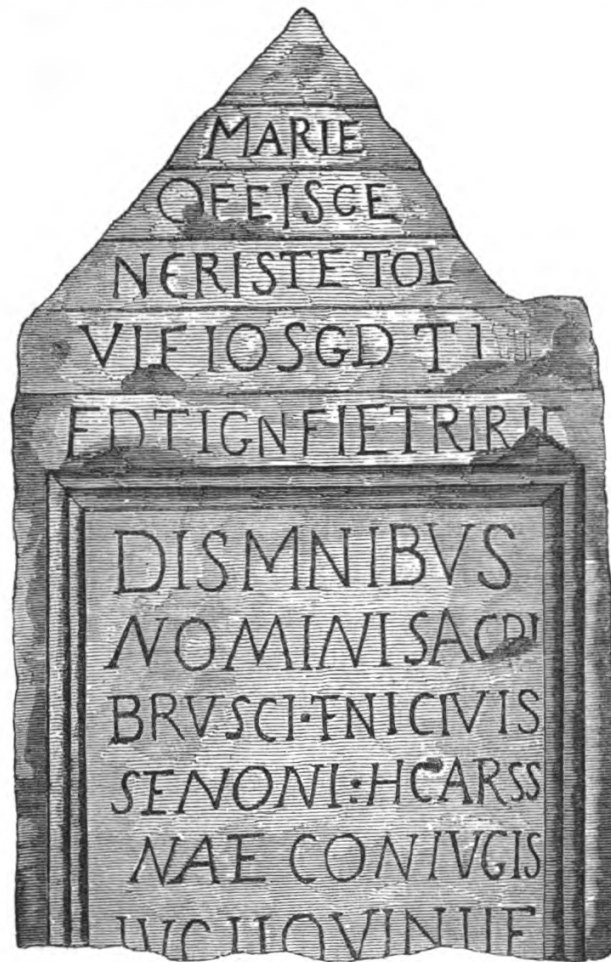 MARIE
OFEISCE
NERISTE TOL
VIFIOSGD TI
EDTIGNFIETRIRIE
DISMNIBVS
NOMINISACRI
BRVSCI·FNICIVIS
SENONI:HCARSS
NAE CONIVGIS